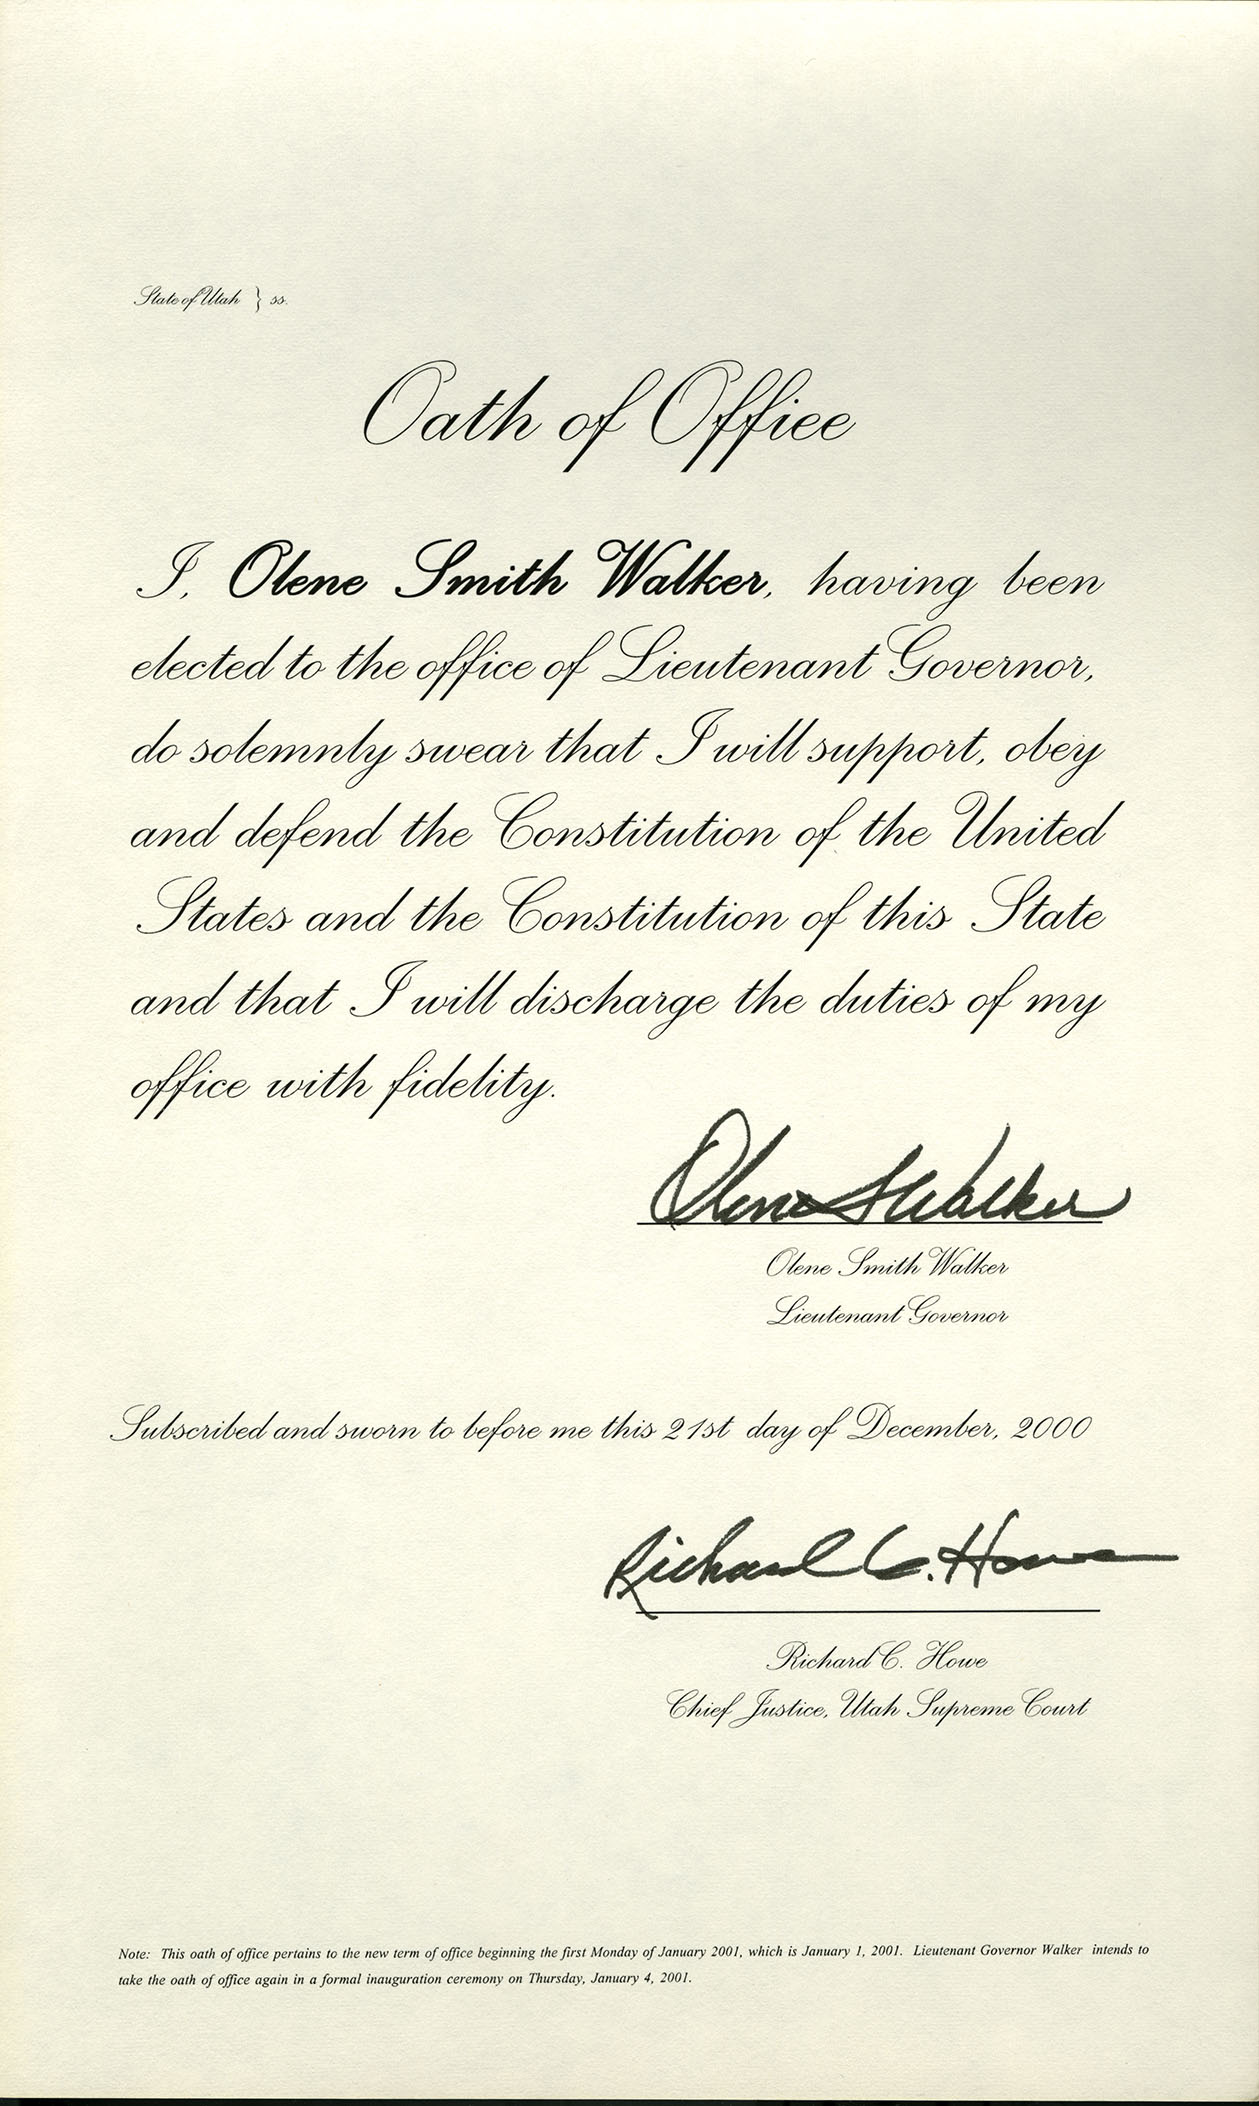 State of Utah } ss.
Oath of Office
I, Olene Smith Walker, having been
elected to the office of Lieutenant Governor,
do solemnly swear that I will support, obey
and defend the Constitution of the United
States and the Constitution of this State
and that I will discharge the duties of my
office with fidelity.
Olene S Walker
Olene Smith Walker
Lieutenant Governor
Subscribed and sworn to before me this 21st day of December, 2000
Richard C. Howe
Richard C. Howe
Chief Justice, Utah Supreme Court
Note: This oath of office pertains to the new term of office beginning the first Monday of January 2001, which is January 1, 2001. Lieutenant Governor Walker intends to
take the oath of office again in a formal inauguration ceremony on Thursday, January 4, 2001.